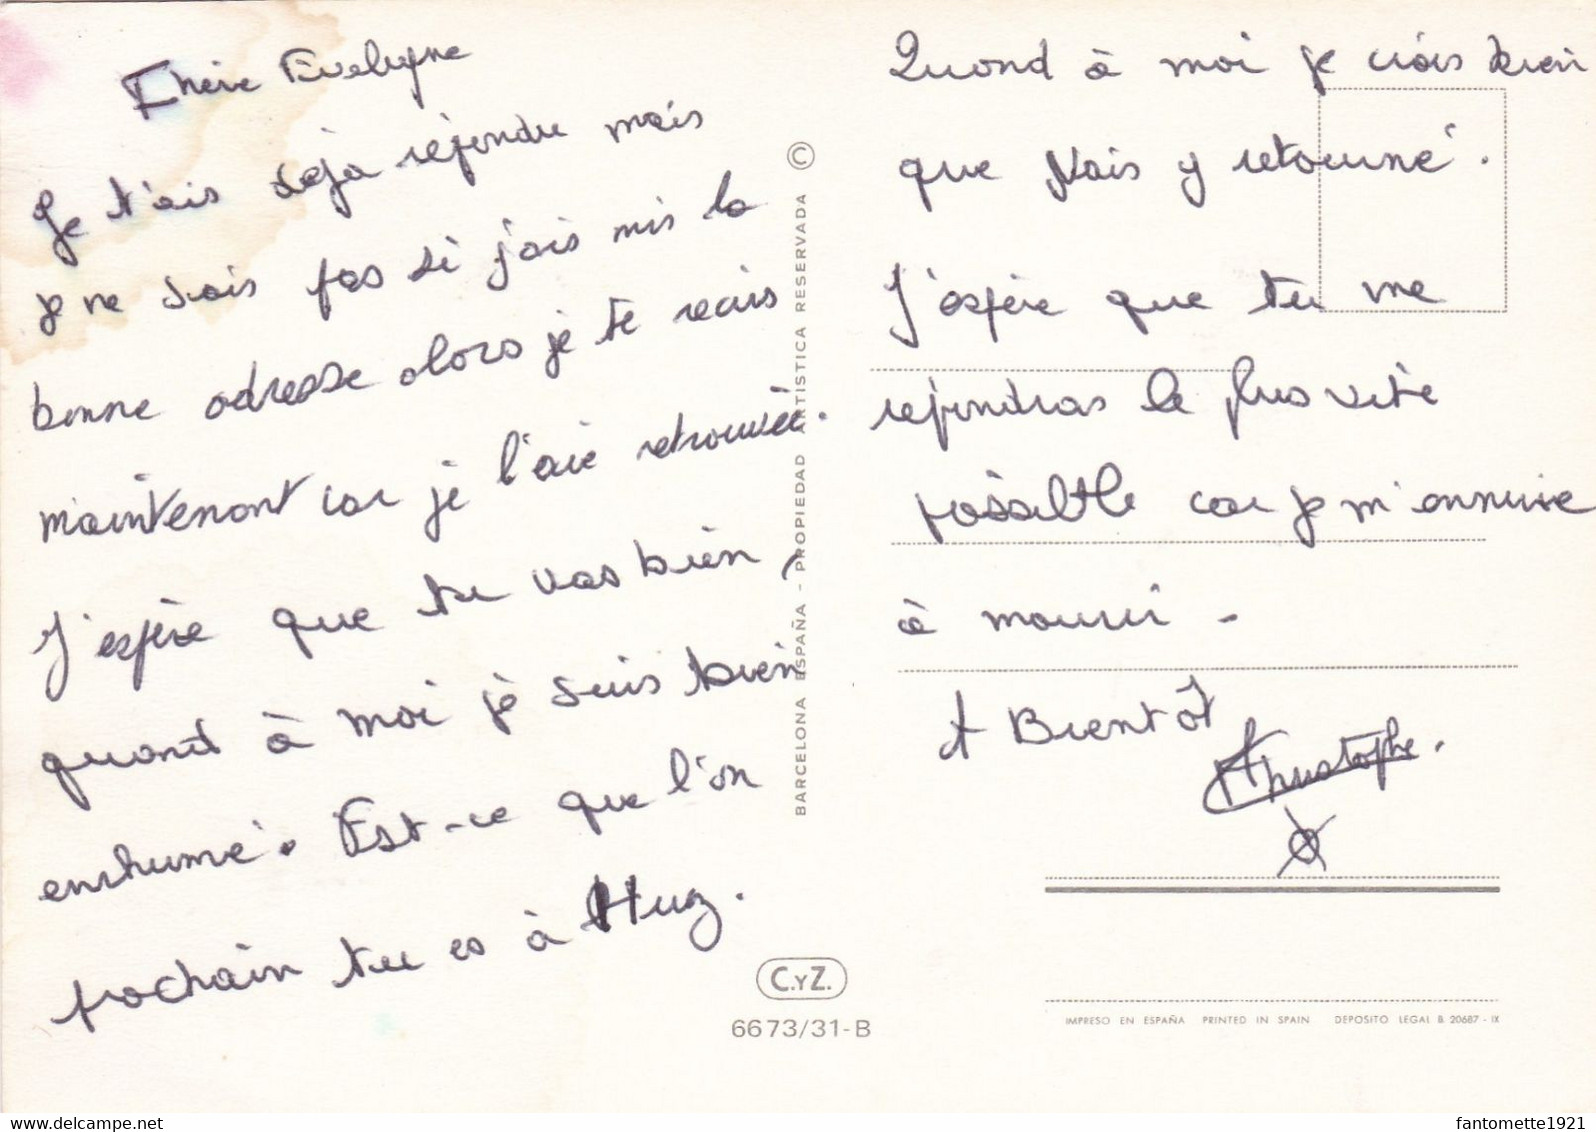 Chère Evelyne
Je t'ais déja répondu mais
je ne sais pas si j'ais mis la
bonne adresse alors je te recris
maintenant car je l'aie retrouvée.
J'espère que tu vas bien,
quand à moi je suis bien
enrhumé. Est-ce que l'on
prochain tu es à Huz.
Quond à moi je crois bien
que j'vais y retourné.
J'espère que tu me
répondras le plus vite
possible car je m'ennuie
à mourir.
A Bientôt
Christophe.
BARCELONA ESPAÑA - PROPIEDAD ARTISTICA RESERVADA ©
C.YZ.
6673/31-B
IMPRESO EN ESPAÑA PRINTED IN SPAIN DEPOSITO LEGAL B. 20687 - IX
fantomette1921